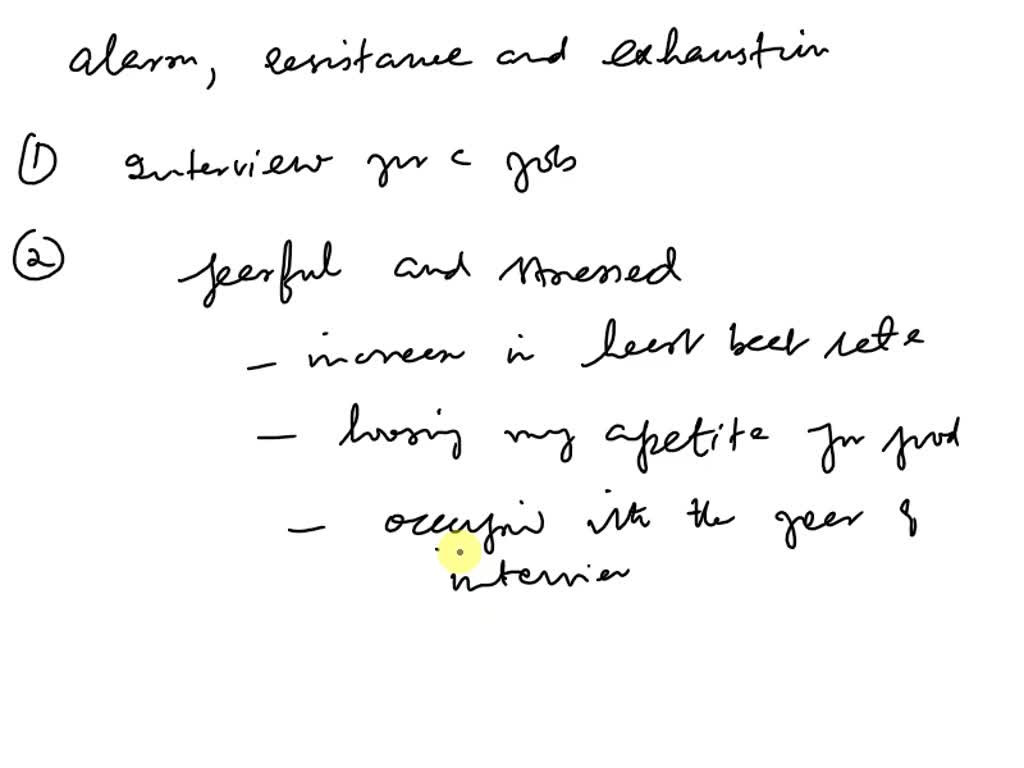 alarm, resistance and exhaustion
① Interview for a job
② fearful and stressed
- increase in heart beat rate
- loosing my apetite for food
- with the fear of
interview